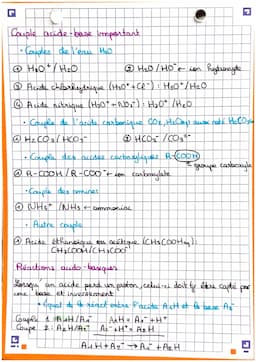 Couple acide-base important
• Couples de l'eau H₂O
① H₃O⁺ / H₂O ② H₂O / HO⁻ ← ion hydroxyde
③ Acide chlorhydrique (H₃O⁺ + Cl⁻) : H₃O⁺ / H₂O
④ Acide nitrique (H₃O⁺ + NO₃⁻) : H₃O⁺ / H₂O
• Couple de l'acide carbonique CO₂, H₂O aussi noté H₂CO₃
① H₂CO₃ / HCO₃⁻ ② HCO₃⁻ / CO₃²⁻
• Couple des acides carboxyliques R-COOH
groupe carboxyle
① R-COOH / R-COO⁻ ← ion carboxylate
• Couple des amines
① NH₄⁺ / NH₃ ← ammoniac
• Autre couple
① Acide éthanoïque ou acétique (CH₃COOH) :
CH₃COOH / CH₃COO⁻
Réactions acido-basiques
Lorsqu'un acide perd un proton, celui-ci doit être capté par
une base et inversement
l'acide A₁H et la base A₂⁻
Couple 1 : A₁H / A₁⁻ A₁H = A₁⁻ + H⁺
Coupe 2 : A₂H / A₂⁻ A₂⁻ + H⁺ = A₂H
A₁H + A₂⁻ → A₁⁻ + A₂H